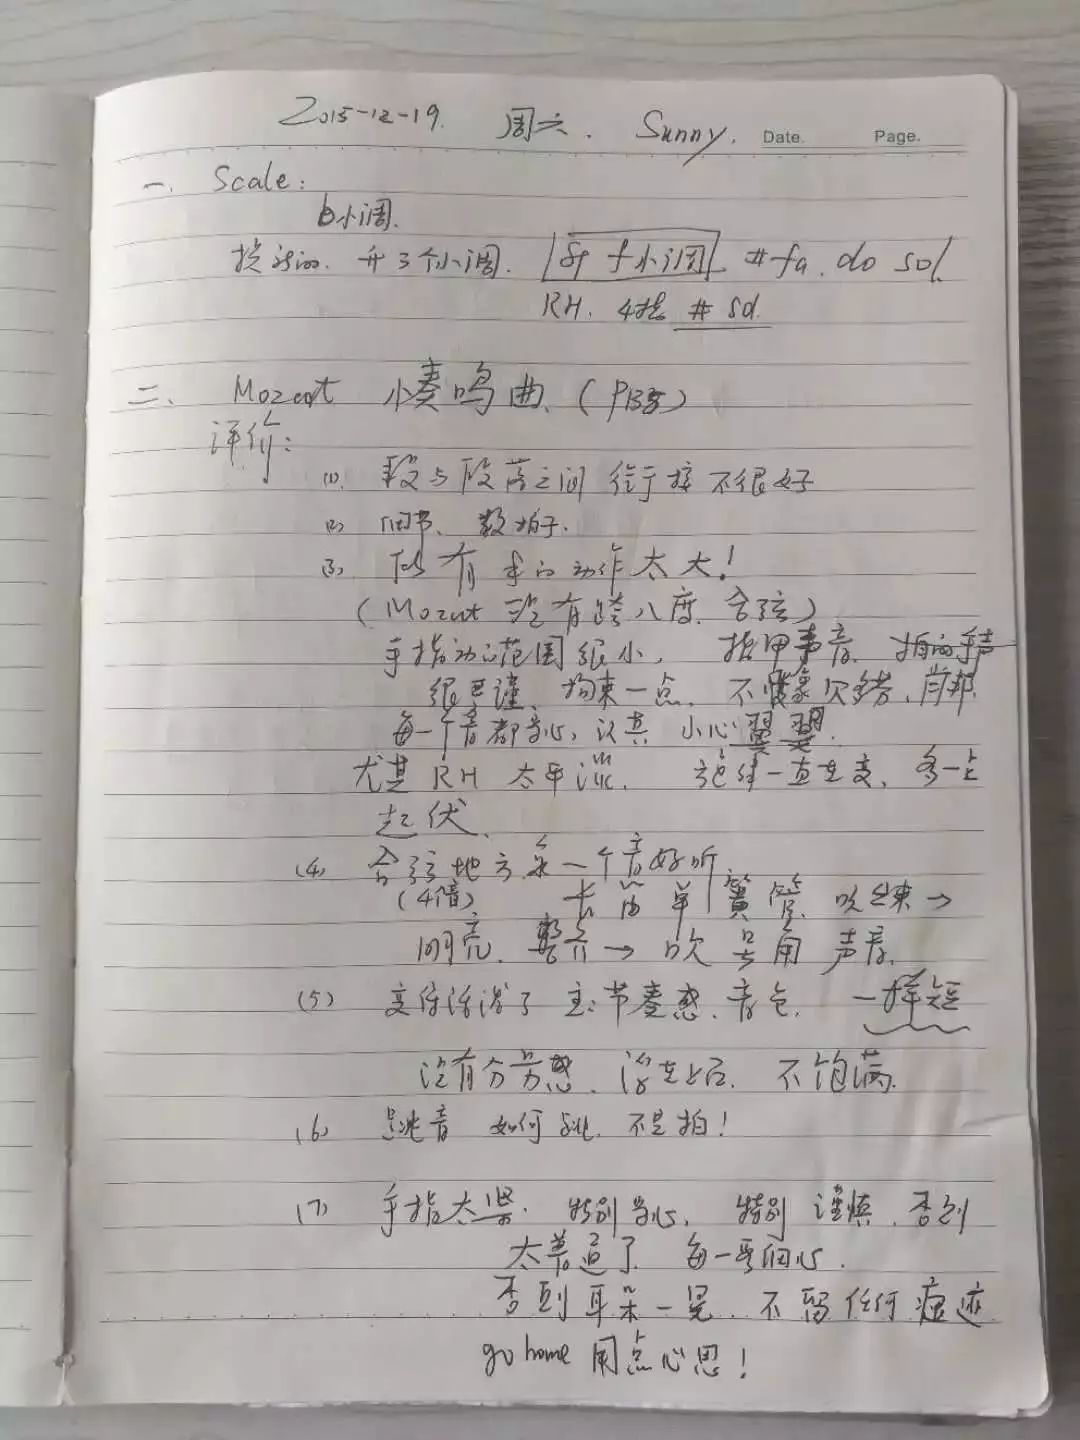 2015-12-19. 周六. Sunny. Date. Page.
一. Scale:
b小调.
换新的. 升3个小调. #f小调 #fa. do sol.
RH. 4指 # sol.
二. Mozart 奏鸣曲. (P135)
评价:
(1). 段与段落之间 衔接 不很好
(2) 细节、数拍子.
(3) 所有 手的动作太大!
(Mozart 没有跨八度. 合弦)
手指动的范围很小. 指甲声音.
很严谨. 拘束一点. 不像贝多芬、肖邦.
每一个音都专心, 认真 小心翼翼.
尤其RH 太平淡. 旋律一直在变、多一点
起伏.
(4) 合弦地方 一个音好听
(4個) 长笛 单簧管. 吹出来→
明亮. →吹号角 声音.
(5) 变得活泼了 注: 节奏感、音色. 一样短
没有分享感. 不饱满.
(6) 跳音 如何跳. 不是拍!
(7) 手指太坚. 特别专心, 特别谨慎. 否则
太普通了. 每一 细心.
否则耳朵一晃. 不留任何痕迹
go home 用点心思!